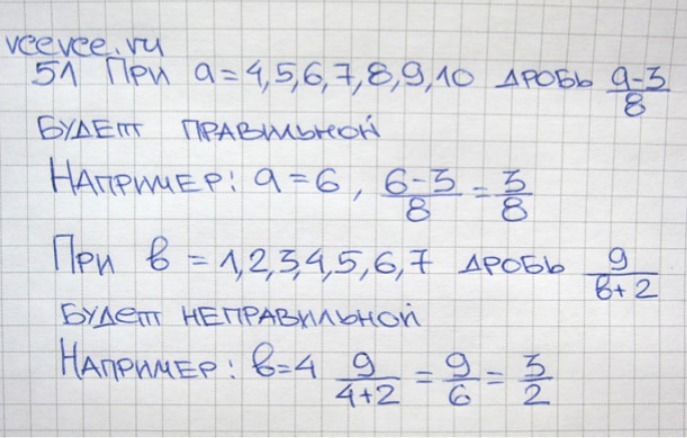 vcevce.ru
51 При a=4,5,6,7,8,9,10 дробь (a-3)/8
будет правильной
Например: a=6, (6-3)/8 = 3/8
При в = 1,2,3,4,5,6,7 дробь 9/(в+2)
будет неправильной
Например: в=4 9/(4+2) = 9/6 = 3/2